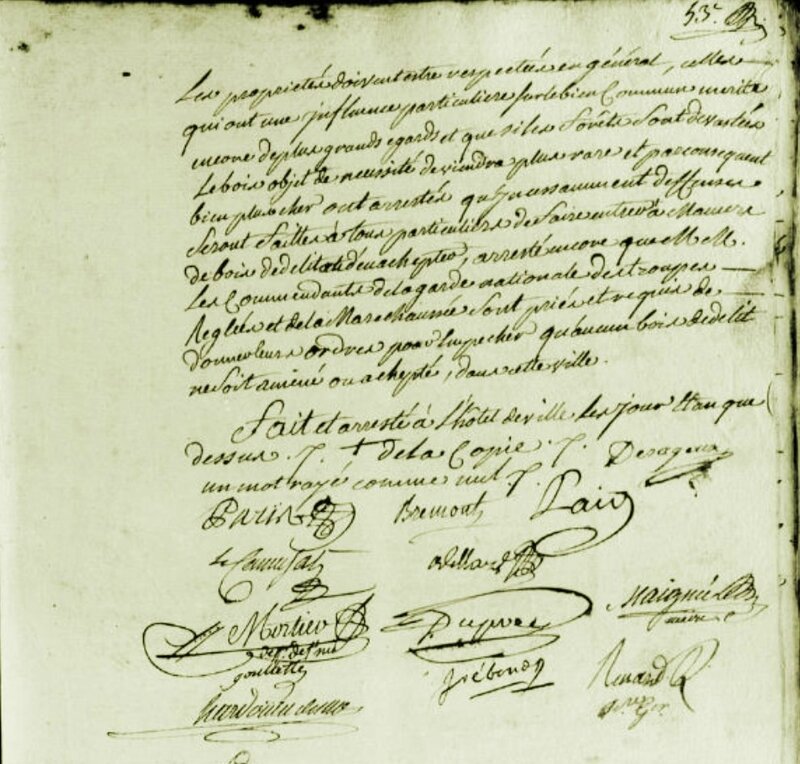 53.
Les proprietés doivent estre respectées en général, celles
qui ont une jnfluence particuliere sur le bien Commun merite
encore de plus grands egards et que si les forêts sont devastées
Le bois objet de necessité deviendra plus rare et par consequent
bien plus cher ont arrestés qu'jncessamment deffenses
seront faittes à tous particuliers de faire entrer à Mamers
de bois de delit et d'en achepter, arresté encore que M.M.
Les Commendants de la garde nationale des troupes
Reglées et de la Marechaussée sont priés et requis de
donner leurs ordres pour Empecher qu'aucun bois de delit
ne soit amené ou achepté, dans cette ville.
Fait et arresté à L'hotel de ville les jour et an que
dessus. /. + de la Copie. /. Desageux
un mot rayé comme nul /.
Paris Bremont Pain
Mortier Dupré Maigné
maire
goullette Trébonet Renard